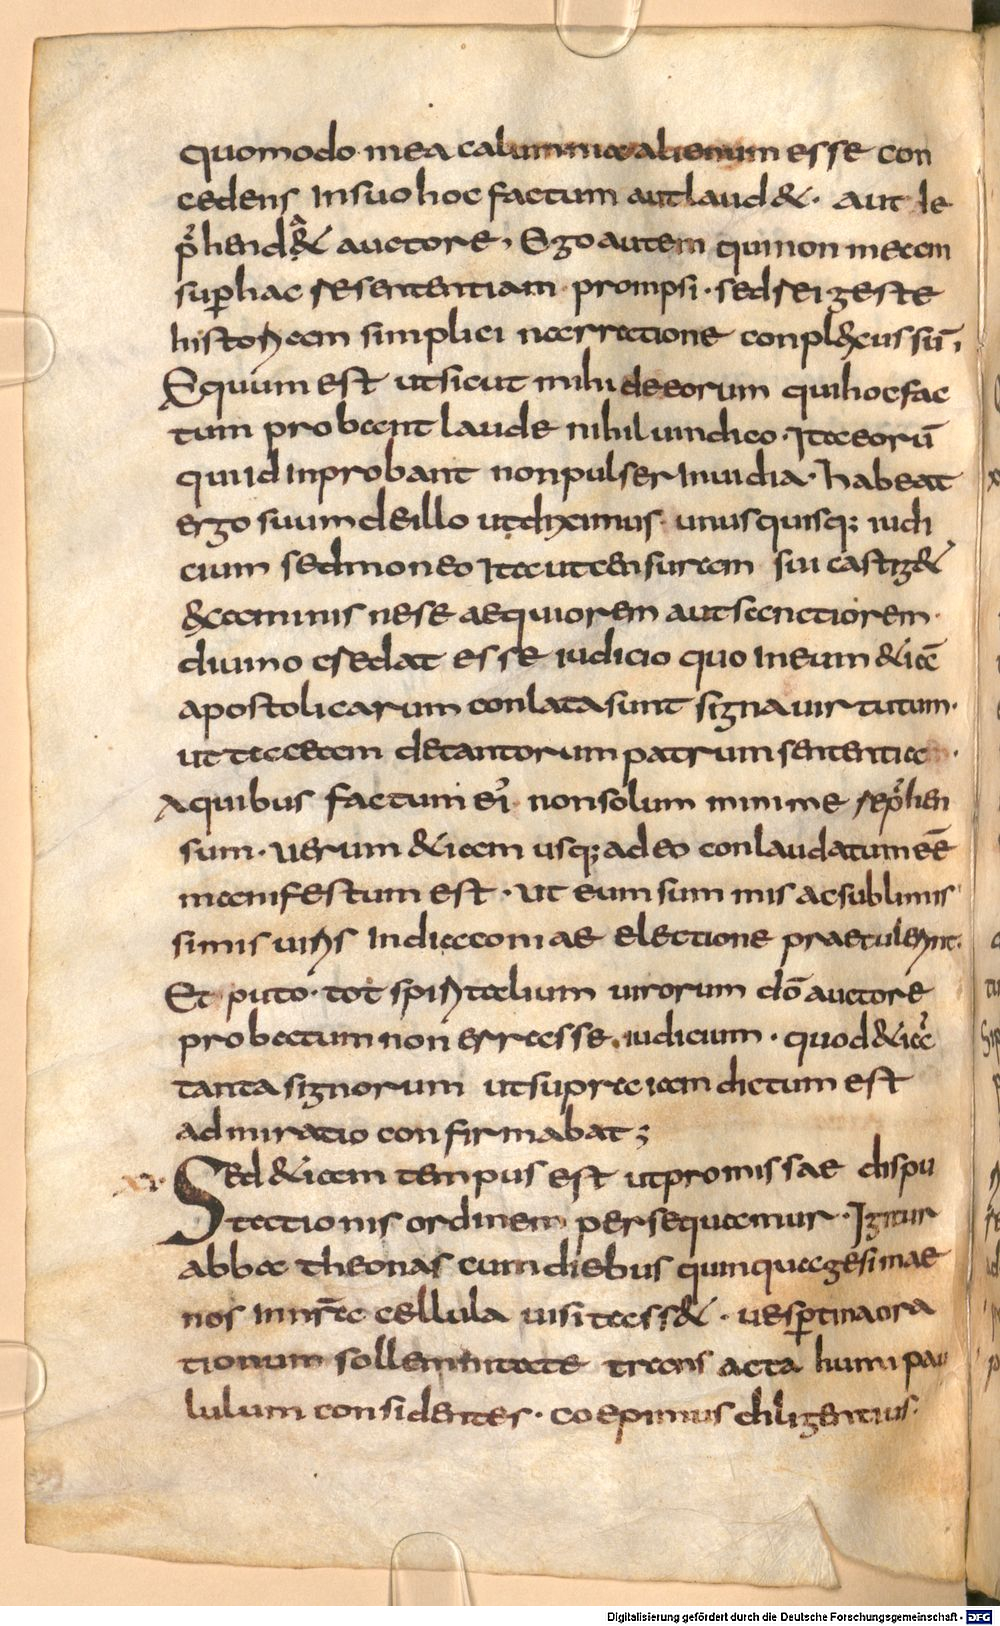 quomodo mea calumnia alienum esse con
cedens in suo hoc factum aut laud&. aut re
p̄hend& auctore, Ego autem qui non meam
sup̱ hac re sententiam prompsi. sed rei gestę
historiam simplici narratione conplexus sū,
Equum est ut sicut mihi de eorum qui hoc fac
tum probant laude nihil uindico. Ita eorū
qui id inprobant non pulser inuidia. habeat
ergo suum de illo ut diximus. unus quisq; iudi
cium sed moneo ita ut censuram sui castig&
examinis ne se aequiorem aut sanctiorem.
diuino credat esse iudicio quo in eum &iā
apostolicarum conlata sunt signa uirtutum.
ut taceam de tantorum patrum sententia.
A quibus factum ei' non solum minime rep̄hen
sum. uerum &iam usq; adeo conlaudatum eē
manifestum est. ut eum summis ac sublimis
simis uiris in diaconiae electione praetulerint.
Et puto. tot spiritalium uirorum dō auctore
probatum non errasse iudicium. quod &iā
tanta signorum ut supra iam dictum est
admiratio confirmabat;
xi. Sed &iam tempus est ut promissae dispu
tationis ordinem persequamur. Igitur
abba theonas cum diebus quinquagesimae
nos in nr̄a cellula uisitass&. uesp̱tina ora
tionum sollemnitate trans acta humi pau
lulum considentes. coepimus diligentius.
Digitalisierung gefördert durch die Deutsche Forschungsgemeinschaft - DFG